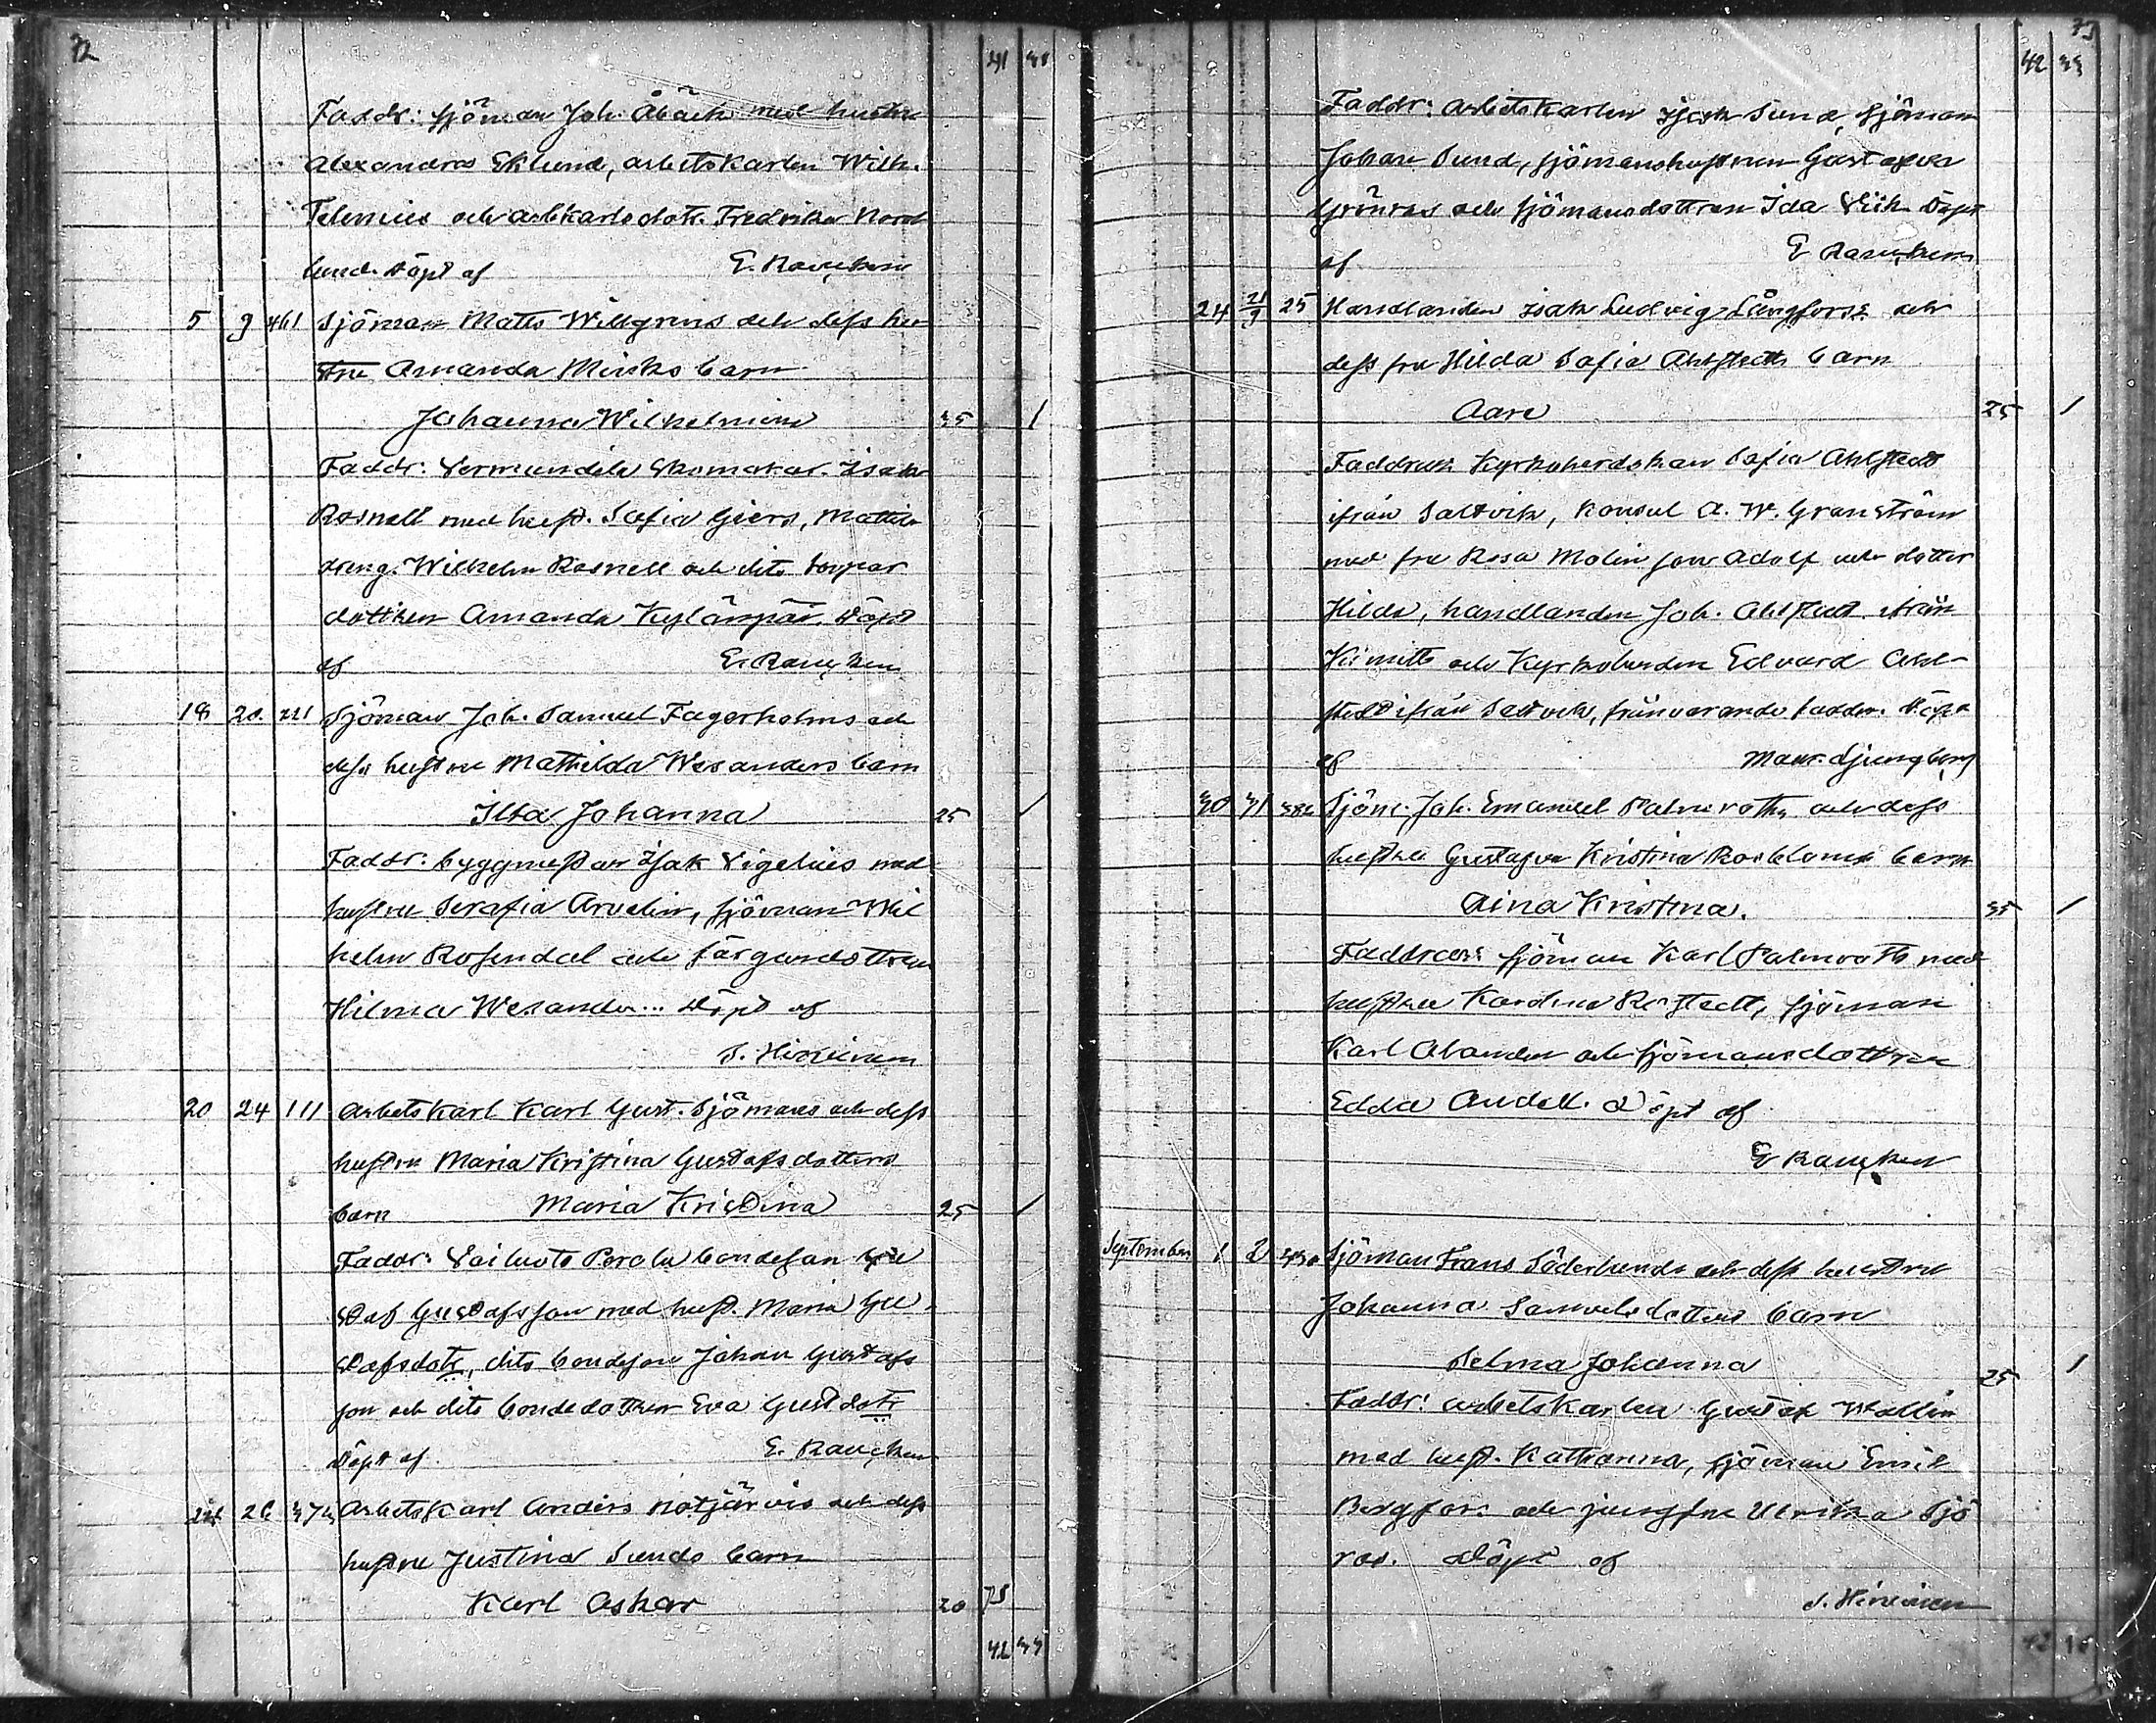 72
41 38
Faddr: sjöman Joh. Åbäck med hustru
Alexandra Eklund, arbetskarlen Wilh.
Telenius och arbkarlsdotr. Fredrika Nord
lund. Döpt af E. Rancken
5 9 461 Sjöman Matts Willgrens och dess hu
stru Amanda Minks barn
Johanna Wilhelmina 35 1
Faddr: Skomakar. Isak
Rosnell med hust. Sofia Giers,
dreng. Wilhelm Rosnell och dito
dottren Amanda Kylänpää. Döpt
af E. Rancken
18 20 221 Sjöman Joh. Samuel Fagerholms och
dess hustru Mathilda Wesanders barn
Ilta Johanna 25 1
Faddr: byggmestar Isak Sigelius med
hustru Serafia Arvelin, sjöman Wil
helm Rosendal och färgaredottren
Hilma Wesander... Döpt af
J. Hirvinen
20 24 111 Arbetskarl Karl Gust. Sjömans och dess
hustru Maria Kristina Gustafsdotters
barn Maria Kristina 25 1
Faddr: bondeson Gu
staf Gustafsson med hust. Maria Gu
stafsdotr, dito bondeson Johan Gustafs
son och dito bondedottren Eva Gustdotr
Döpt af E. Rancken
24 26 Arbetskarl Anders Notjärvis och dess
hustru Justina Sunds barn
Karl Oskar 20 75
42 33
73
42 33
Faddr: arbetskarlen Isak Sund, sjöman
Johan Sund, sjömanshustrun Gustafva
Grönroos och sjömansdottren Ida Vik Döpt
af E Rancken
24 21/9 25 Handlanden Isak Ludvig Långfors: och
dess fru Hilda Sofia Ahlstedts barn
Aare 25 1
Faddrar: Kyrkoherdskan Sofia Ahlstedt
ifrån Saltvik, Konsul A. W. Granström
med fru Rosa Molin son Adolf och dotter
Hilda, handlanden Joh. Ahlstedt ifrån
Kimitto och Kyrkoherden Edvard Ahl-
stedt ifrån Saltvik, frånvarande faddr. Döpt
af Maur. Ljungberg
30 31 382 Sjöm. Joh. Emanuel Palmroths och dess
hustru Gustafva Kristina Rosbloms barn
Aina Kristina. 35 1
Faddrar: sjöman Karl Palmroth med
hustru Karolina, sjöman
Karl Alander och sjömansdottren
Edda Audell. Döpt af
E Rancken
September 1 2 Sjöman Frans Söderlunds och dess hustru
Johanna Samuelsdotters barn
Selma Johanna 25 1
Faddr: arbetskarlen Gustaf Wallin
med hust. Katharina, sjöman Emil
Bergfors och jungfru Ulrika Sjö
ros. Döpt af
J. Hirvinen